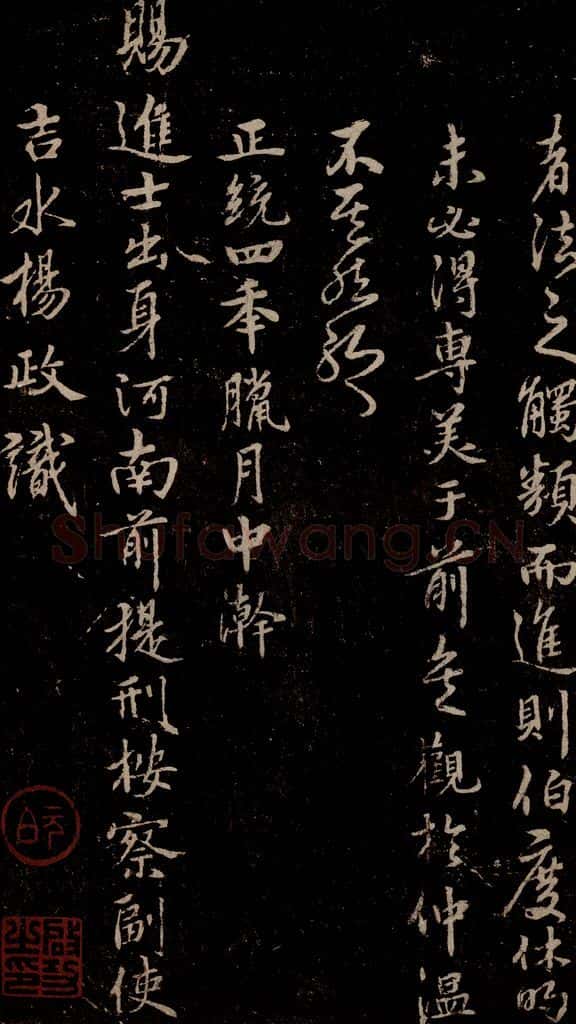 者法之觸類而進則伯度休明
未必得專美于前矣觀於仲溫
不其然耶
正統四年臘月中澣
賜進士出身河南前提刑按察副使
吉水楊政識
元白
啟功之印
Shufawang.CN